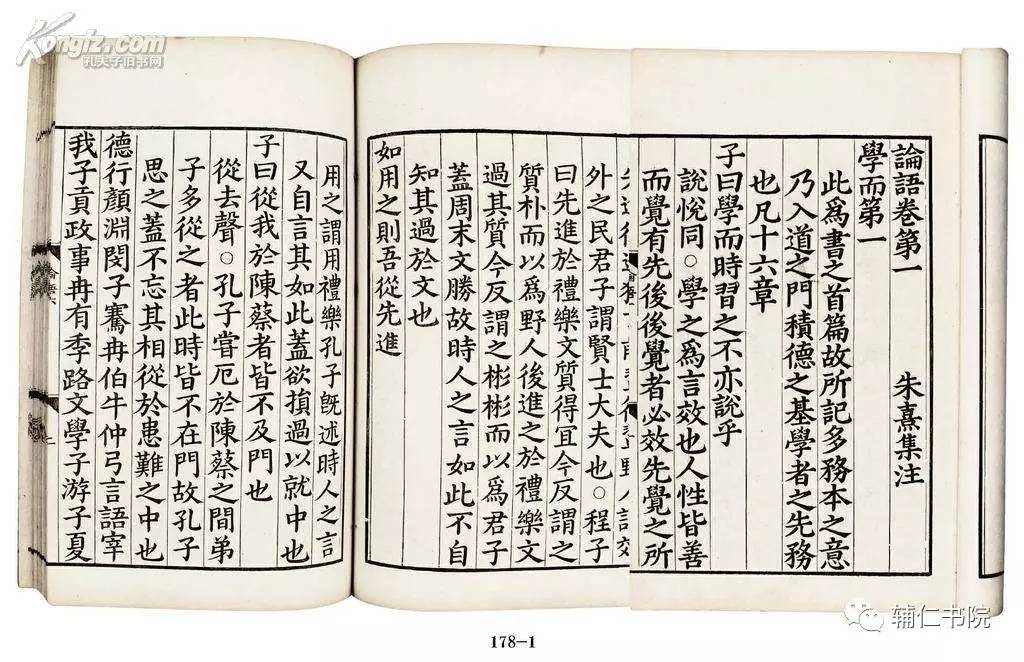 論語卷第一 朱熹集注
學而第一
此爲書之首篇故所記多務本之意
乃入道之門積德之基學者之先務
也凡十六章
子曰學而時習之不亦說乎
說悅同○學之爲言效也人性皆善
而覺有先後後覺者必效先覺之所
外之民君子謂賢士大夫也○程子
曰先進於禮樂文質得宜今反謂之
質朴而以爲野人後進之於禮樂文
過其質今反謂之彬彬而以爲君子
蓋周末文勝故時人之言如此不自
知其過於文也
如用之則吾從先進
用之謂用禮樂孔子旣述時人之言
又自言其如此蓋欲損過以就中也
子曰從我於陳蔡者皆不及門也
從去聲○孔子嘗厄於陳蔡之間弟
子多從之者此時皆不在門故孔子
思之蓋不忘其相從於患難之中也
德行顏淵閔子騫冉伯牛仲弓言語宰
我子貢政事冉有季路文學子游子夏
Kongfz.com
孔夫子旧书网
辅仁书院
178-1